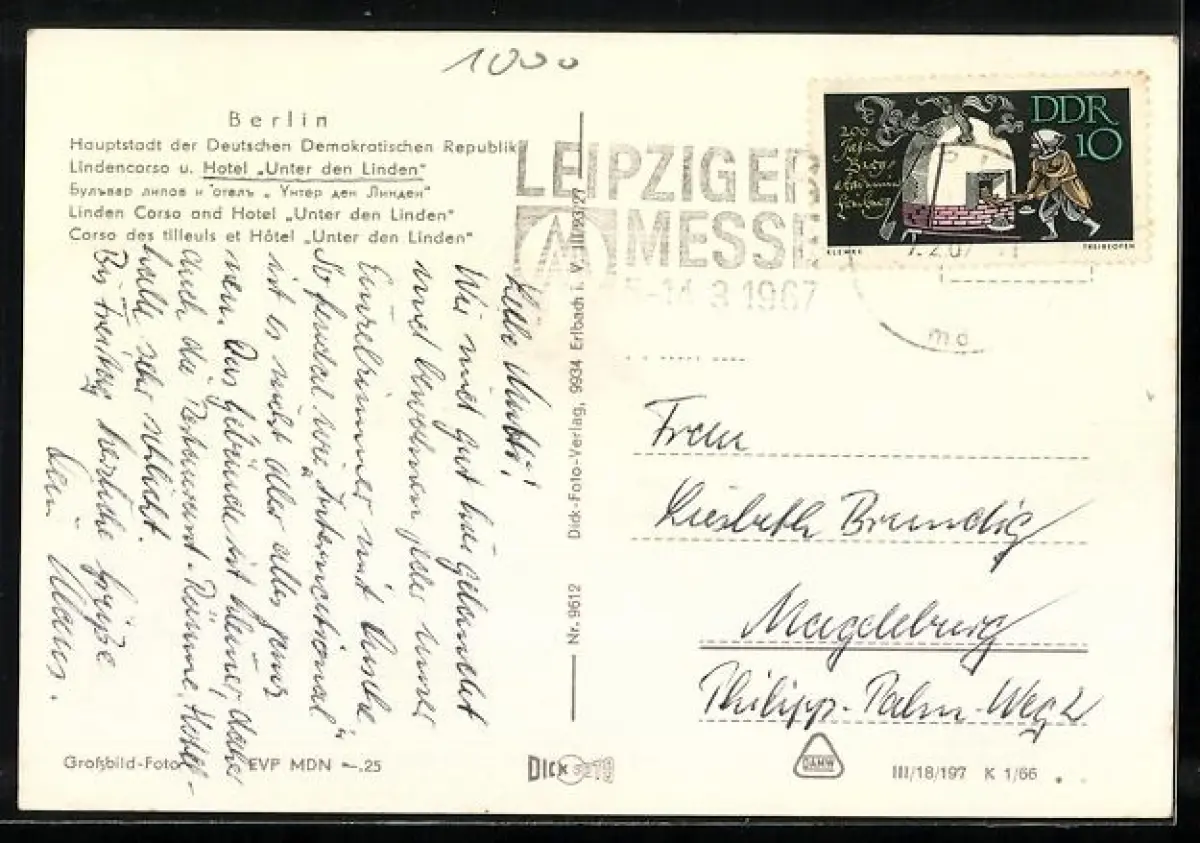 1000
Berlin
Hauptstadt der Deutschen Demokratischen Republik
Lindencorso u. Hotel „Unter den Linden"
Бульвар липов и отель „Унтер ден Линден"
Linden Corso and Hotel „Unter den Linden"
Corso des tilleuls et Hôtel „Unter den Linden"
LEIPZIGER
MESSE
5-14.3.1967
DDR
10
200
Jahre
Berg-
akademie
Freiberg
KLEMKE
TREIBEOFEN
7.2.67
Liebe Mutti!
Wir sind gut hier gelandet
und bewohnen jeder unser
Einzelzimmer mit Dusche
So feudal wie „International"
ist es nicht aber alles ganz
neu. Das Gebäude ist kleiner, daher
auch die Restaurant-Räume. Hotel-
halle sehr schlicht.
Bis Freitag herzliche Grüße
Dein Klaus.
Nr. 9612 Dick-Foto-Verlag, 9934 Erlbach i. V. III/93/27
Frau
Liesbeth Brendig
Magdeburg
Philipp-Palm-Weg 2
Großbild-Foto
EVP MDN -.25
DICK
DAMW
III/18/197 K 1/66